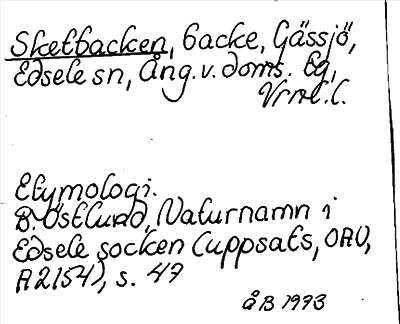 Sketbacken, backe, Gässjö,
Edsele sn, Ång. v. doms. bg,
Vrml.l.
Etymologi.
B. Östlund, Naturnamn i
Edsele socken (uppsats, OAU,
A2154), s. 47
åB 1973